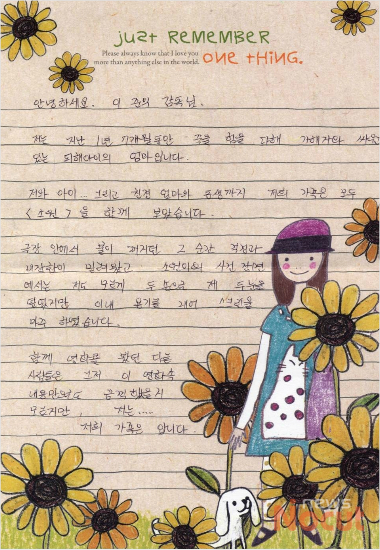 just REMEMBER
Please always know that I love you
more than anything else in the world.
ONE tHING.
안녕하세요. 이 준익 감독님.
저는 지난 1년 7개월동안 죽을 힘을 다해 가해자와 싸우고
있는 피해아이의 엄마입니다.
저와 아이... 그리고 친정 엄마와 동생까지 저희 가족은 모두
<소원>을 함께 보았습니다.
극장 안에서 불이 꺼지던 그 순간 걱정과
긴장감이 밀려왔고 소원이의 사건 장면
에서는 저도 모르게 두 눈을
용기를 내어
마주 하였습니다.
함께 영화를 봤던 다른
사람들은 그저 이 영화속
내용만으로
모르지만, 저는.....
저희 가족은 압니다.
news